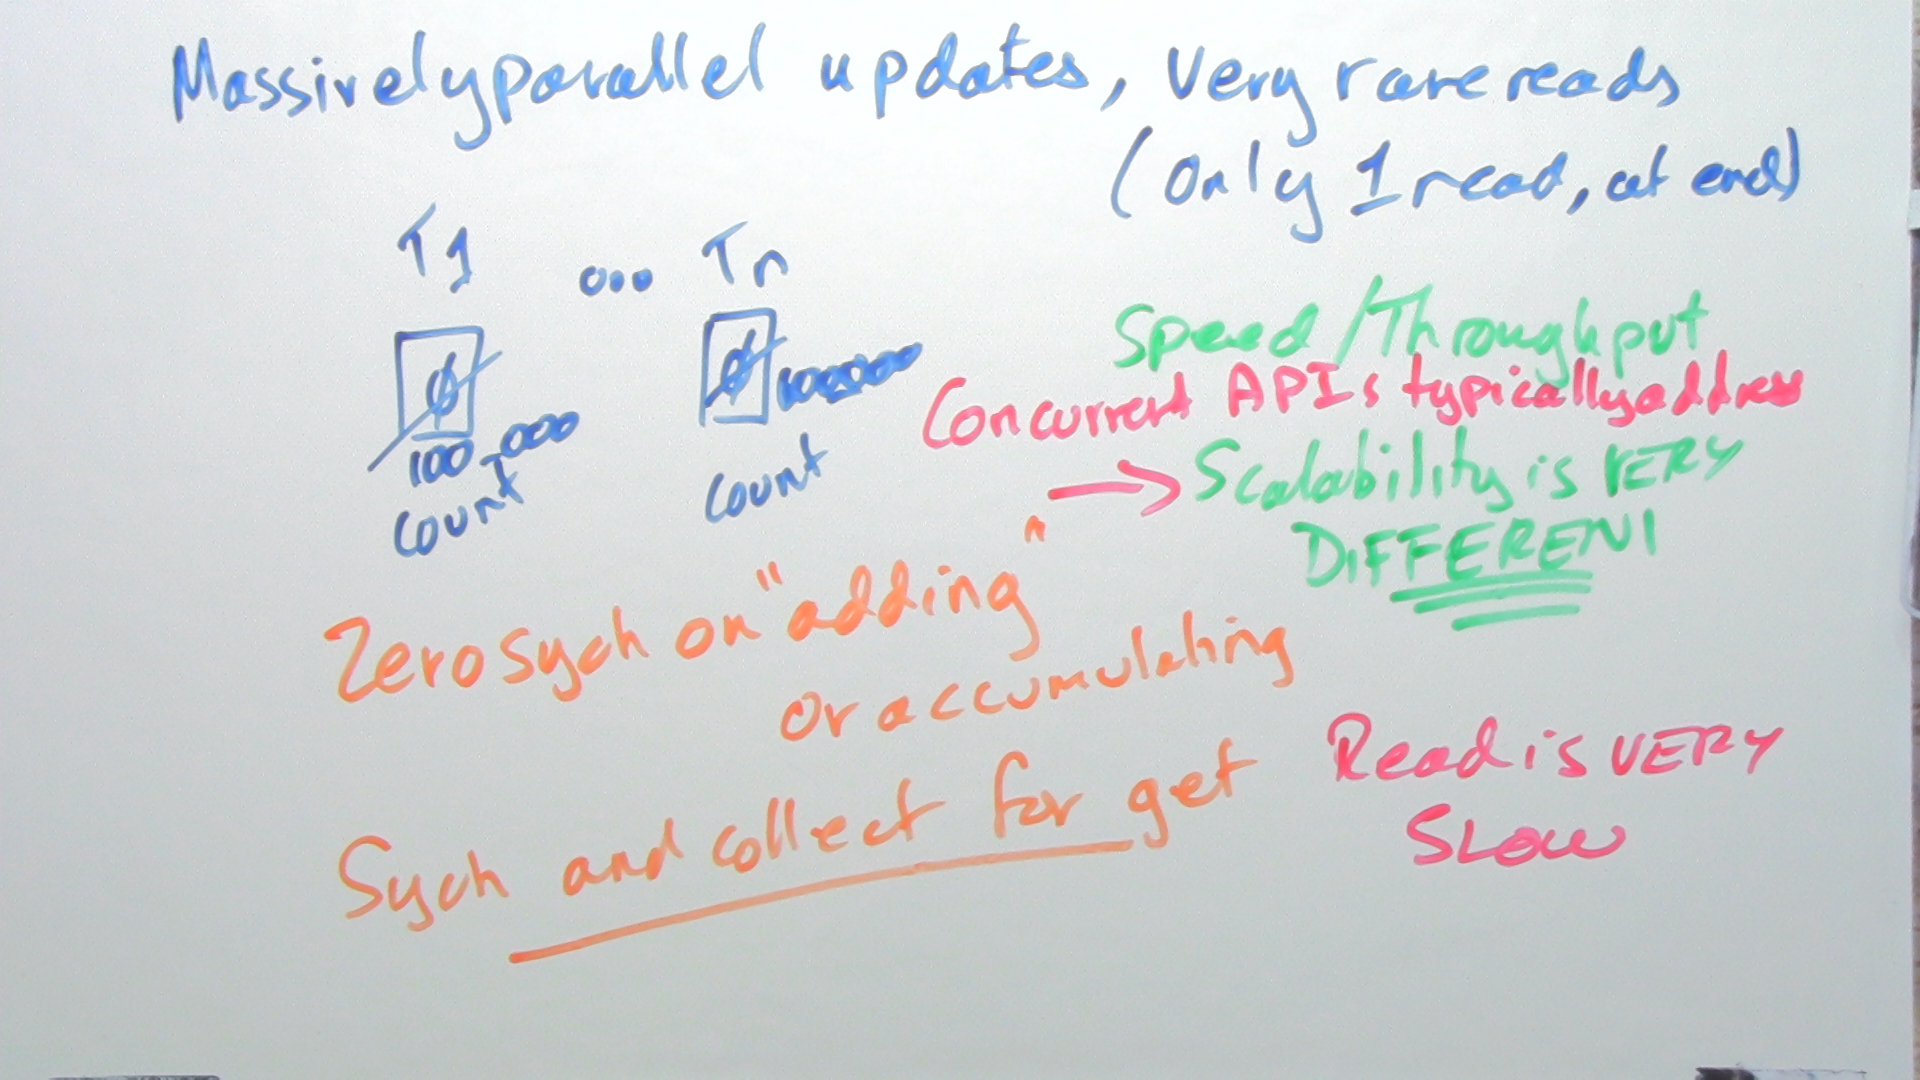 Massively parallel updates, Very rare reads
(Only 1 read, at end)
T1 ... Tn
0 0
100,000 100000
count count
Speed/Throughput
Concurrent APIs typically address
→ Scalability is VERY
DIFFERENT
Zero sych on "adding"
or accumulating
Sych and collect for get
Read is VERY
SLOW